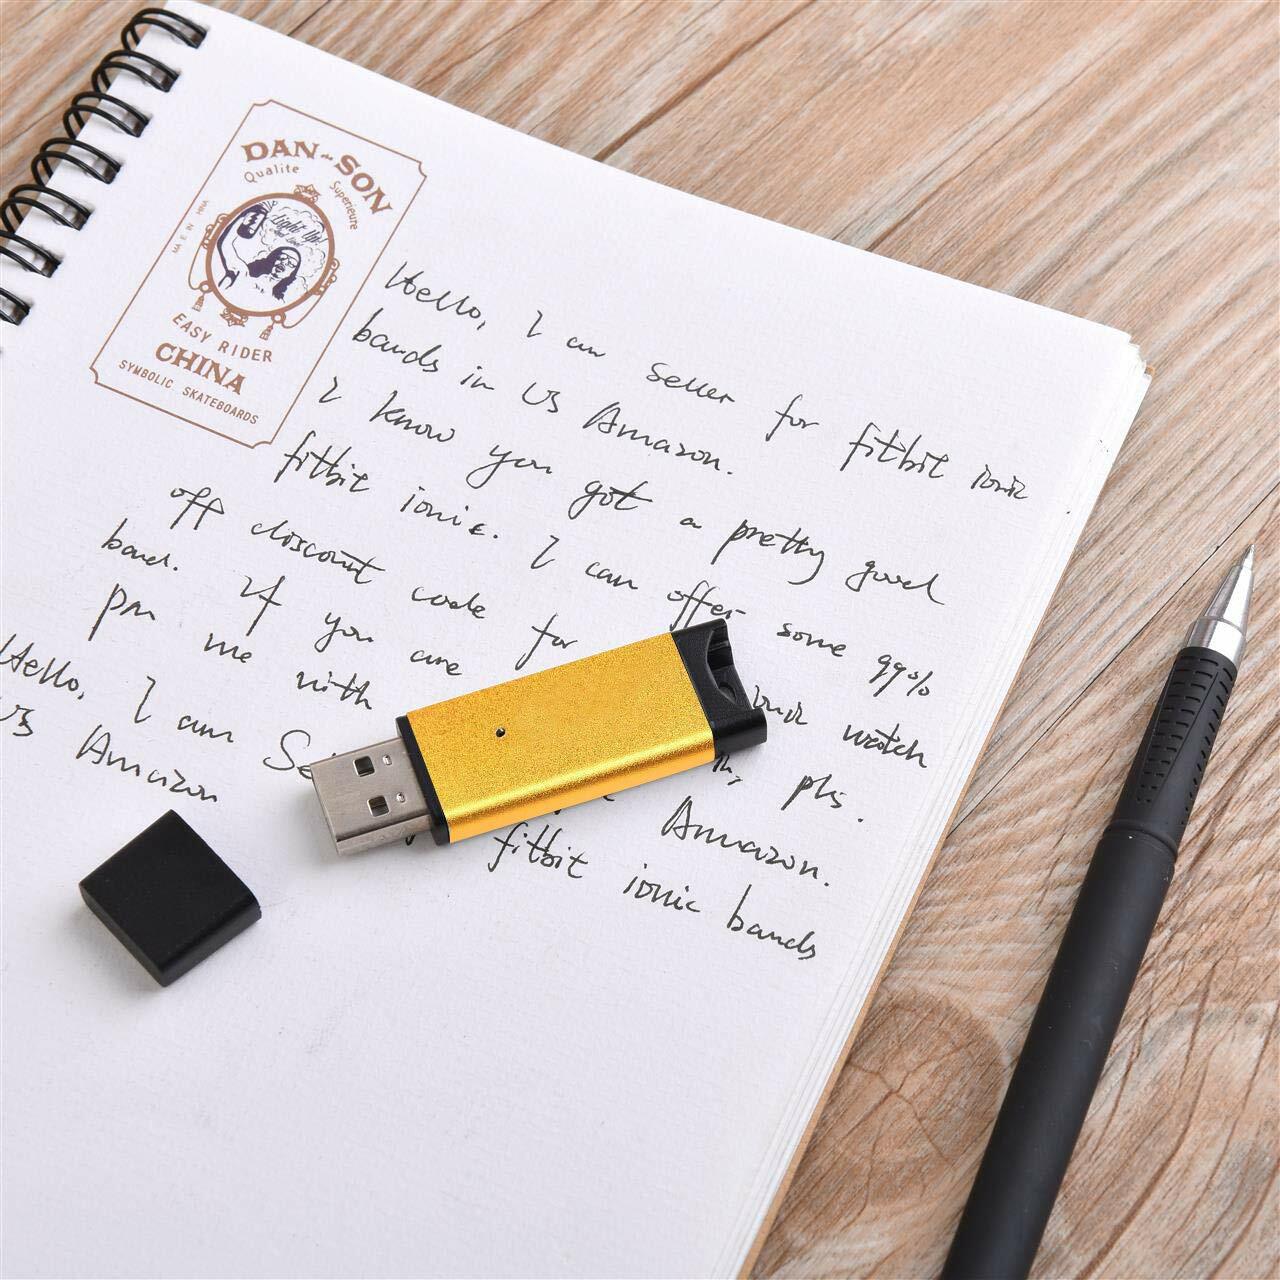 DAN de SON
Qualite Superieure
MA E IN HINA
Light Up!
EASY RIDER
CHINA
SYMBOLIC SKATEBOARDS
Hello, I am Seller for fitbit ionic
bands in US Amazon.
I know you got a pretty good
fitbit ionic. I can offer some 99%
off discount code for ionic watch
band. If you are
pm me with pls.
Hello, I am Se Amazon.
US Amazon fitbit ionic bands